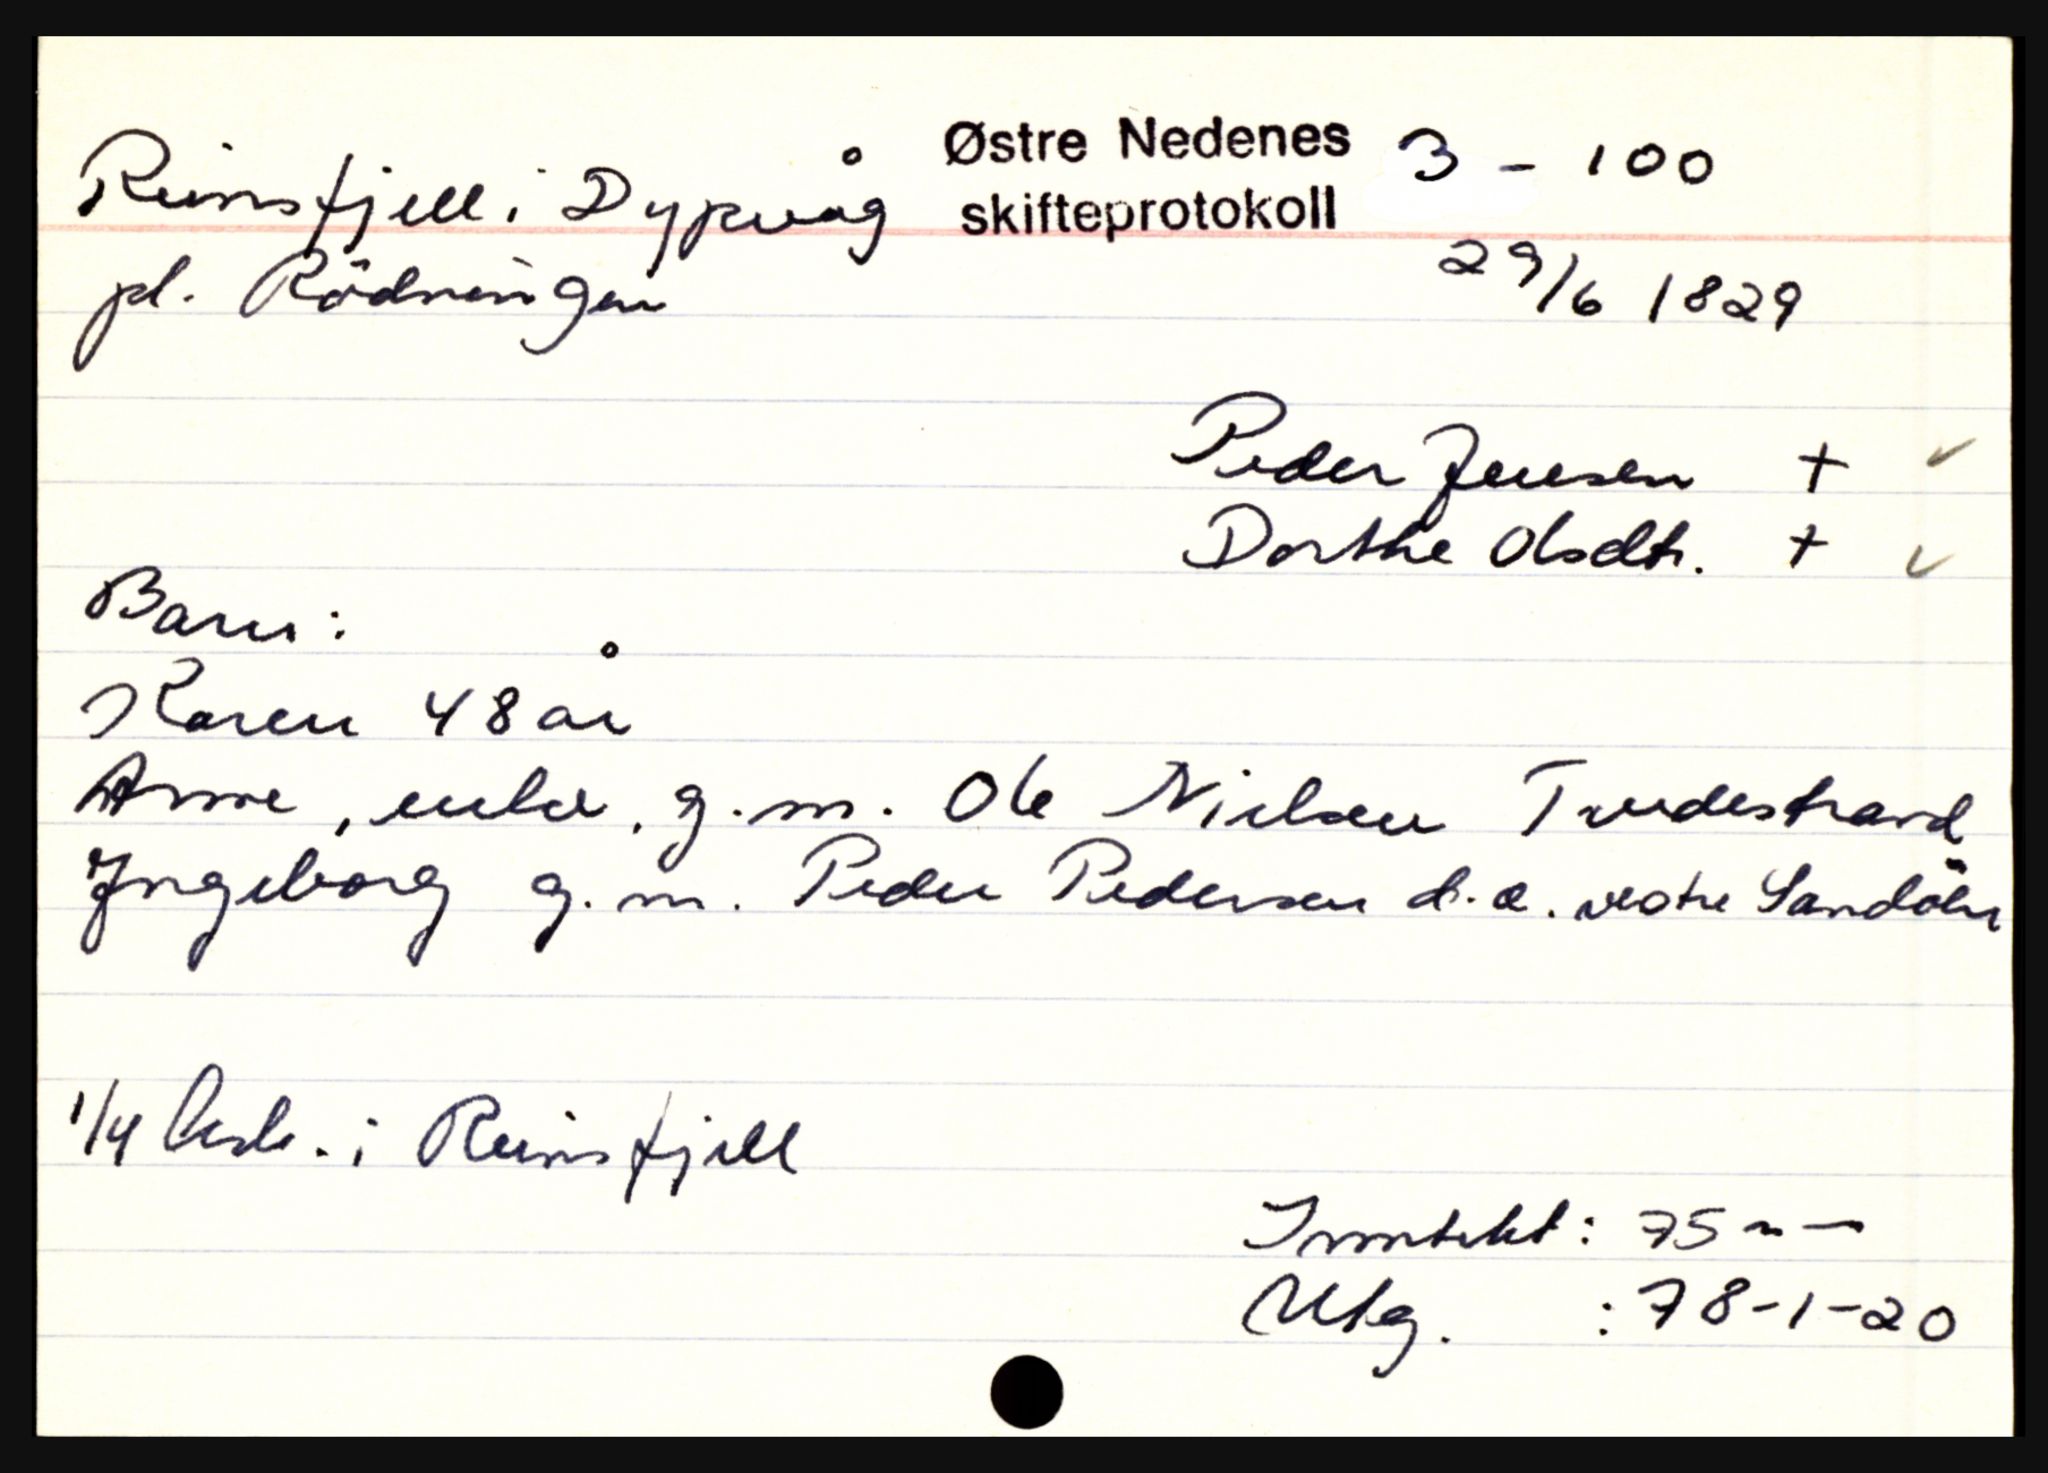 Reinsfjell i Dypvåg
Østre Nedenes
skifteprotokoll
3 - 100
pl. Rödningen
29/6 1829
Peder Jensen +
Dorthe Olsdtr. +
Barn:
Karen 48 år
Anne, enke, g.m. Ole Nielsen Tvedestrand
Ingeborg g.m. Peder Pedersen d.e. vestre Sandöen
1/4 i Reinsfjell
Inntekt: 75 - -
Utg. : 78-1-20